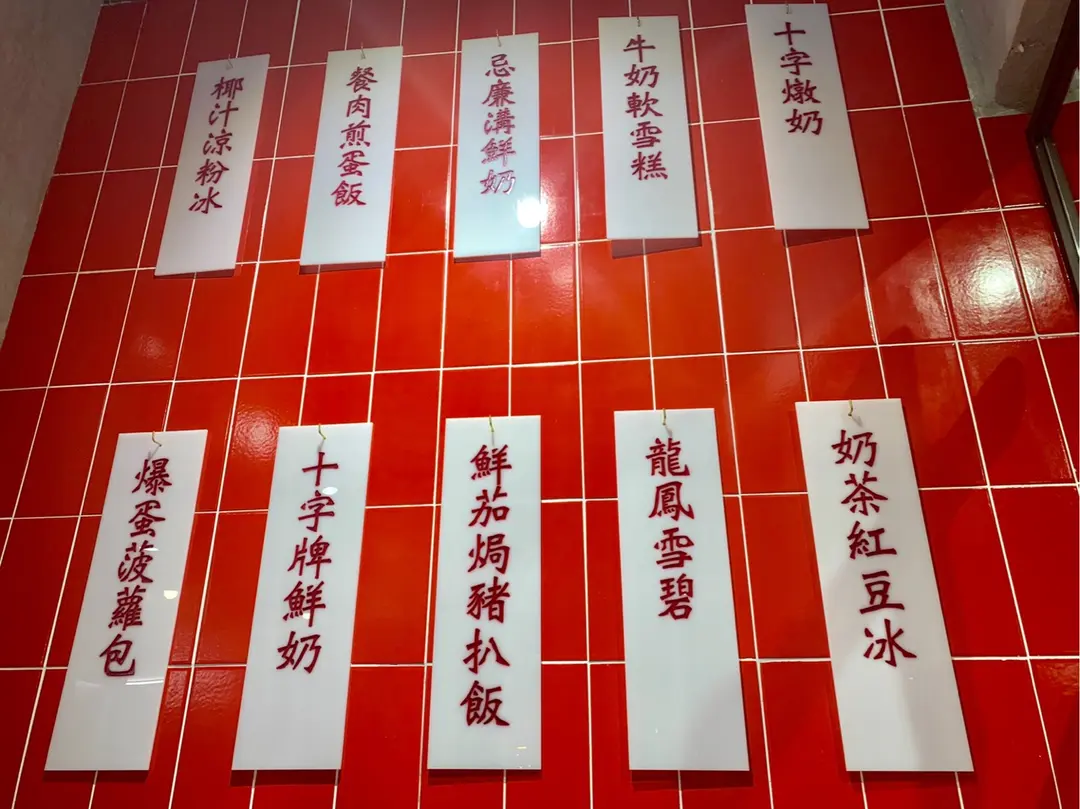 十字燉奶
牛奶軟雪糕
忌廉溝鮮奶
餐肉煎蛋飯
椰汁涼粉冰
奶茶紅豆冰
龍鳳雪碧
鮮茄焗豬扒飯
十字牌鮮奶
爆蛋菠蘿包